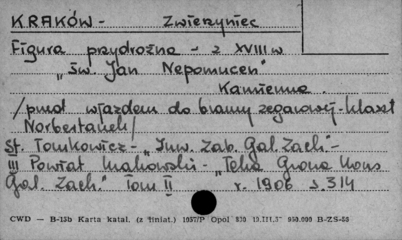 KRAKÓW - Zwierzyniec
Figura przydrożna - z XVIII w
„św. Jan Nepomucen"
Kamienna.
/przed wjazdem do bramy zegarowej - klaszt
Norbertanek/
St. Tomkowicz - „Inw. Zab. Gal. Zach." -
III Powiat Krakowski - „Teka Grona Kons
Gal. Zach." Tom II r. 1906 s. 314
CWD — B-15b Karta katal. (z liniat.) 1957/P Opol